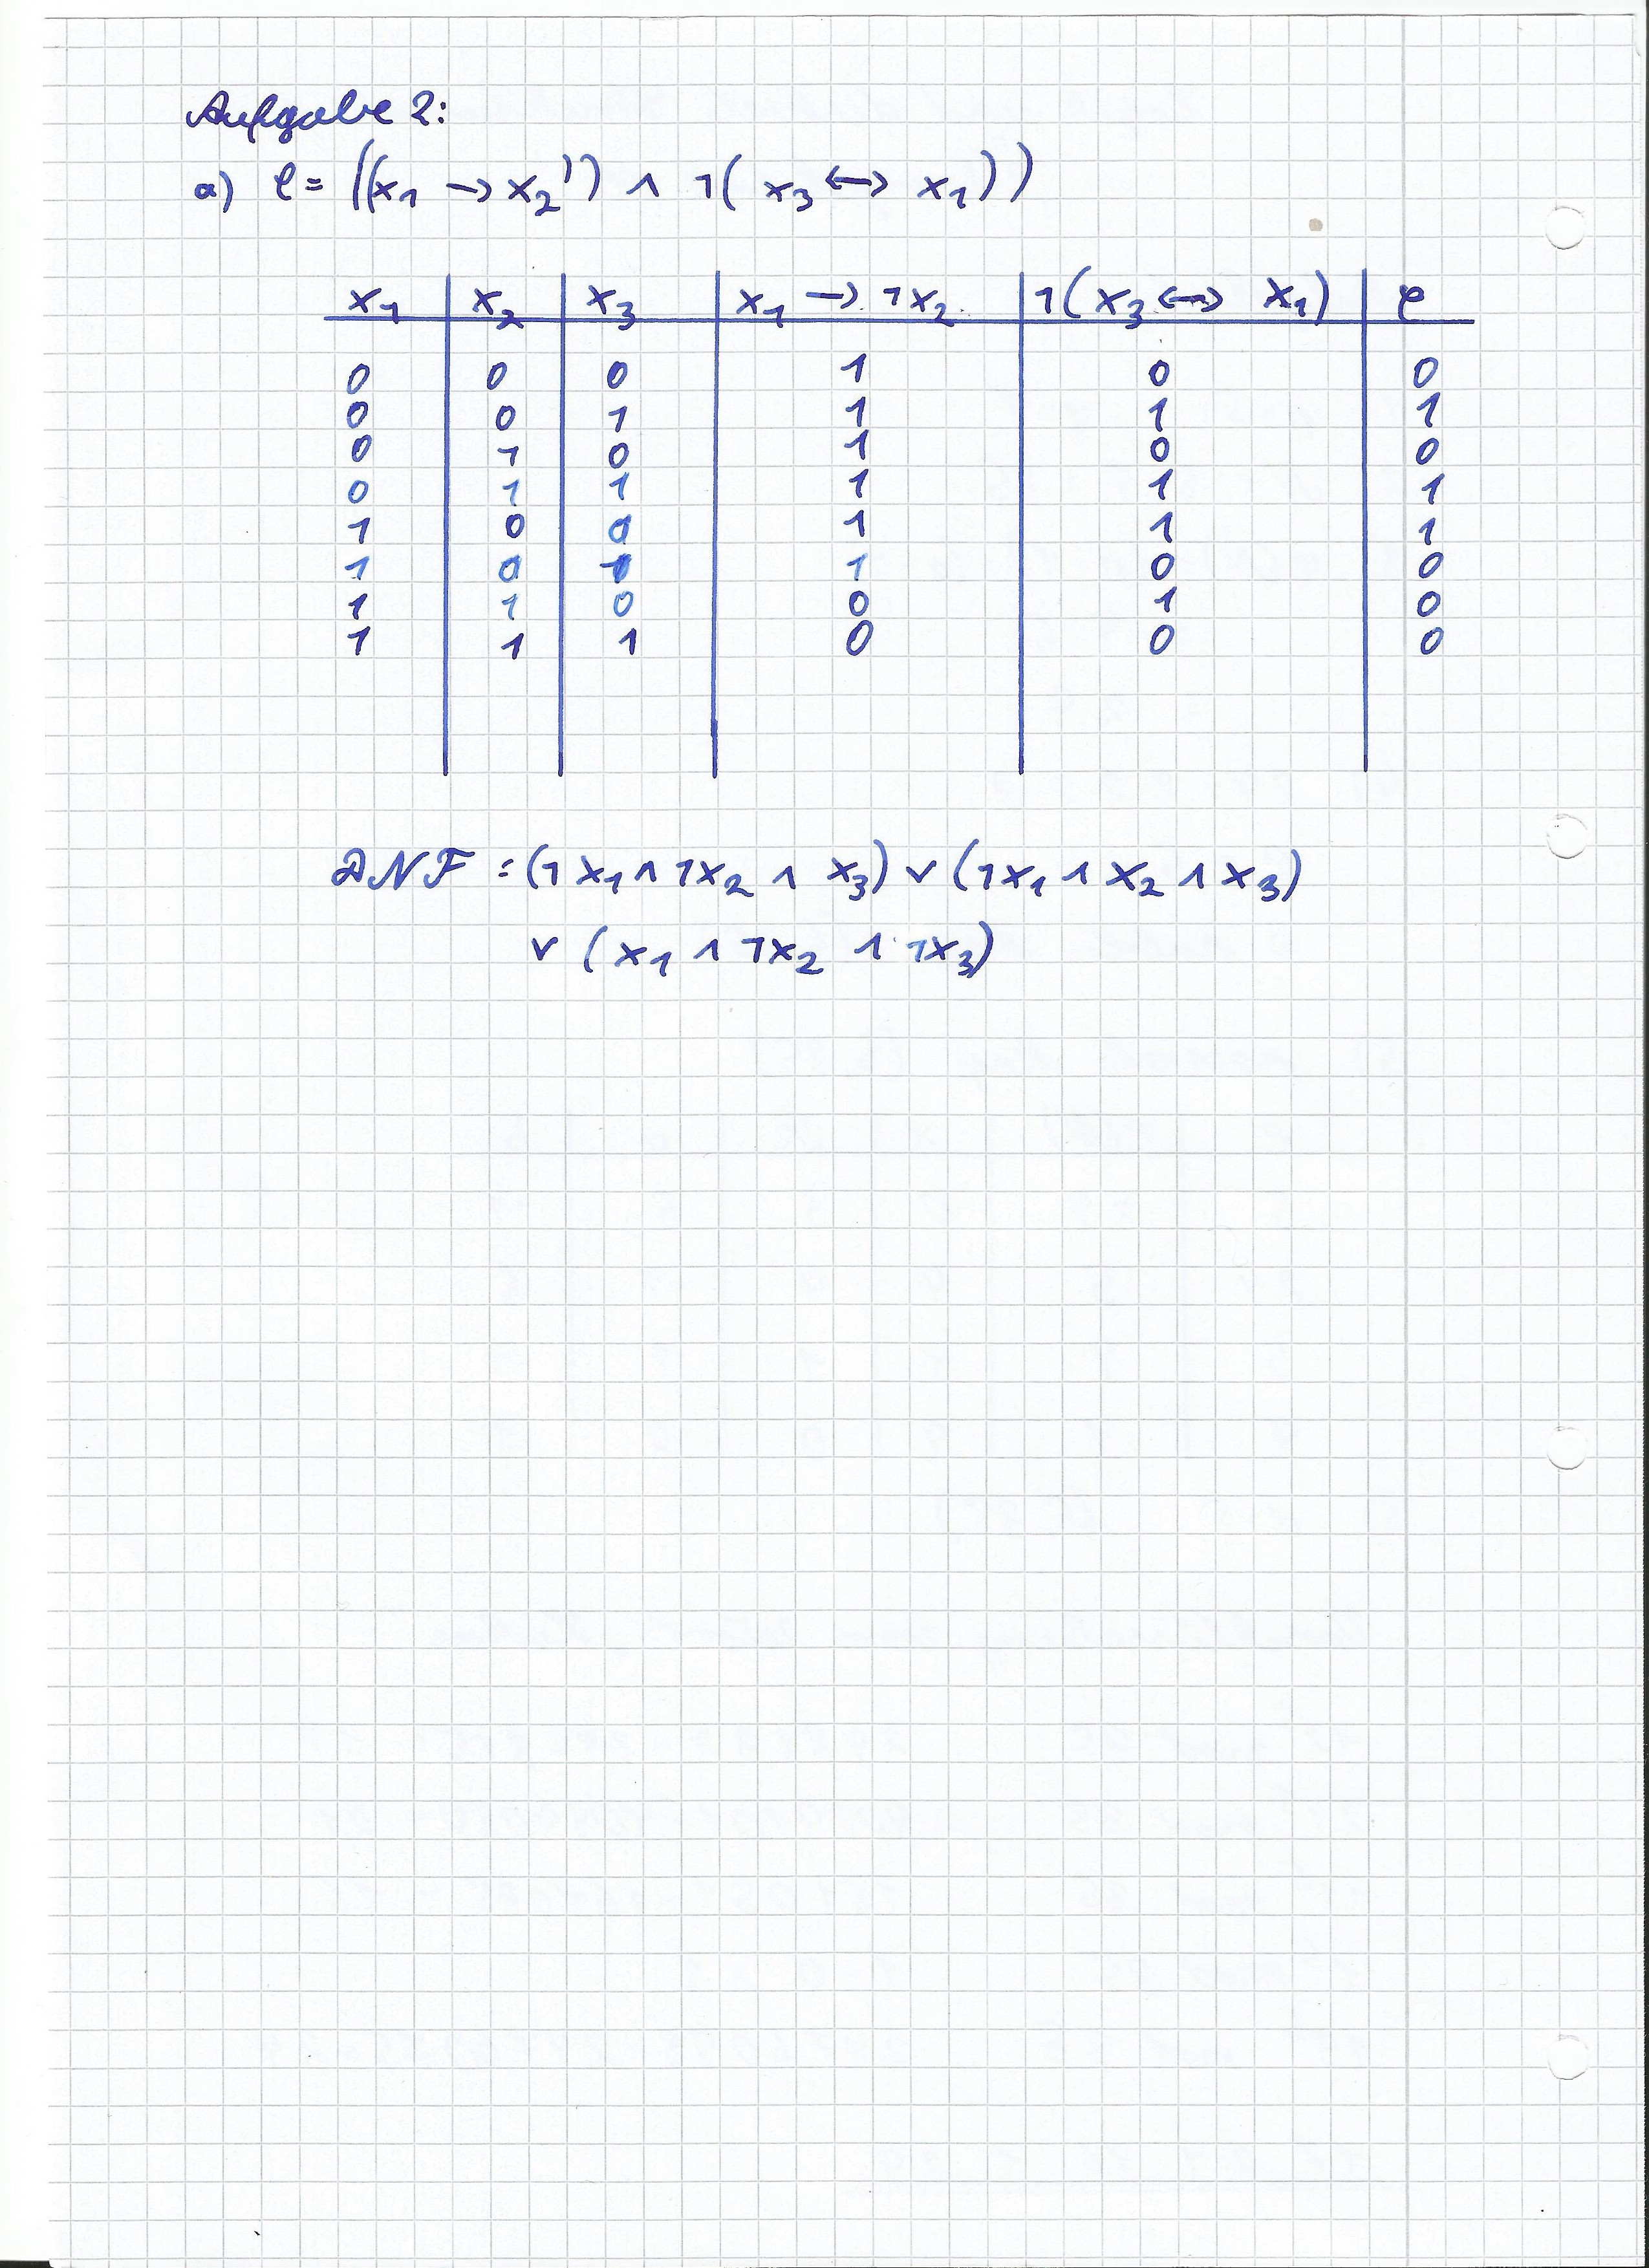 Aufgabe 2:
a) φ = ((x₁ → x₂') ∧ ¬(x₃ ↔ x₁))
x₁ x₂ x₃ x₁ → ¬x₂ ¬(x₃ ↔ x₁) φ
0 0 0 1 0 0
0 0 1 1 1 1
0 1 0 1 0 0
0 1 1 1 1 1
1 0 0 1 1 1
1 0 1 1 0 0
1 1 0 0 1 0
1 1 1 0 0 0
DNF = (¬x₁ ∧ ¬x₂ ∧ x₃) ∨ (¬x₁ ∧ x₂ ∧ x₃)
∨ (x₁ ∧ ¬x₂ ∧ ¬x₃)